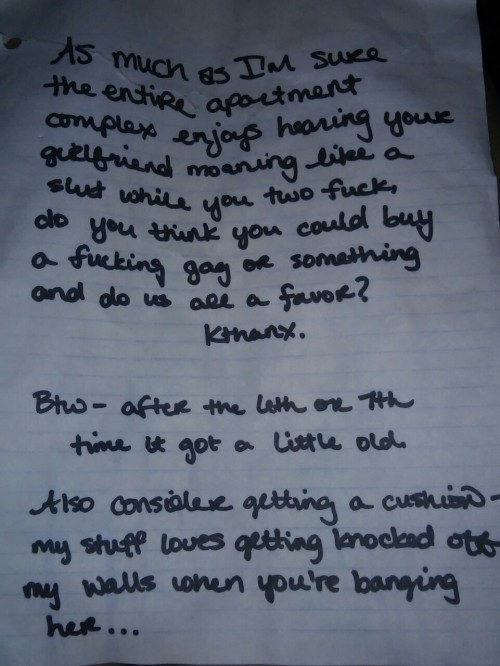 As much as I'm sure
the entire apartment
complex enjoys hearing your
girlfriend moaning like a
slut while you two fuck,
do you think you could buy
a fucking gag or something
and do us all a favor?
Kthanx.
Btw - after the 6th or 7th
time it got a little old.
Also consider getting a cushion -
my stuff loves getting knocked off
my walls when you're banging
here...